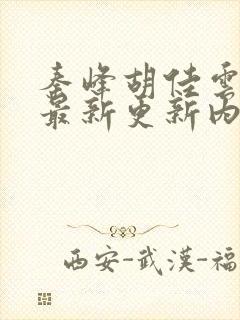 秦峰胡佳雲
最新更新内
西安-武漢-福